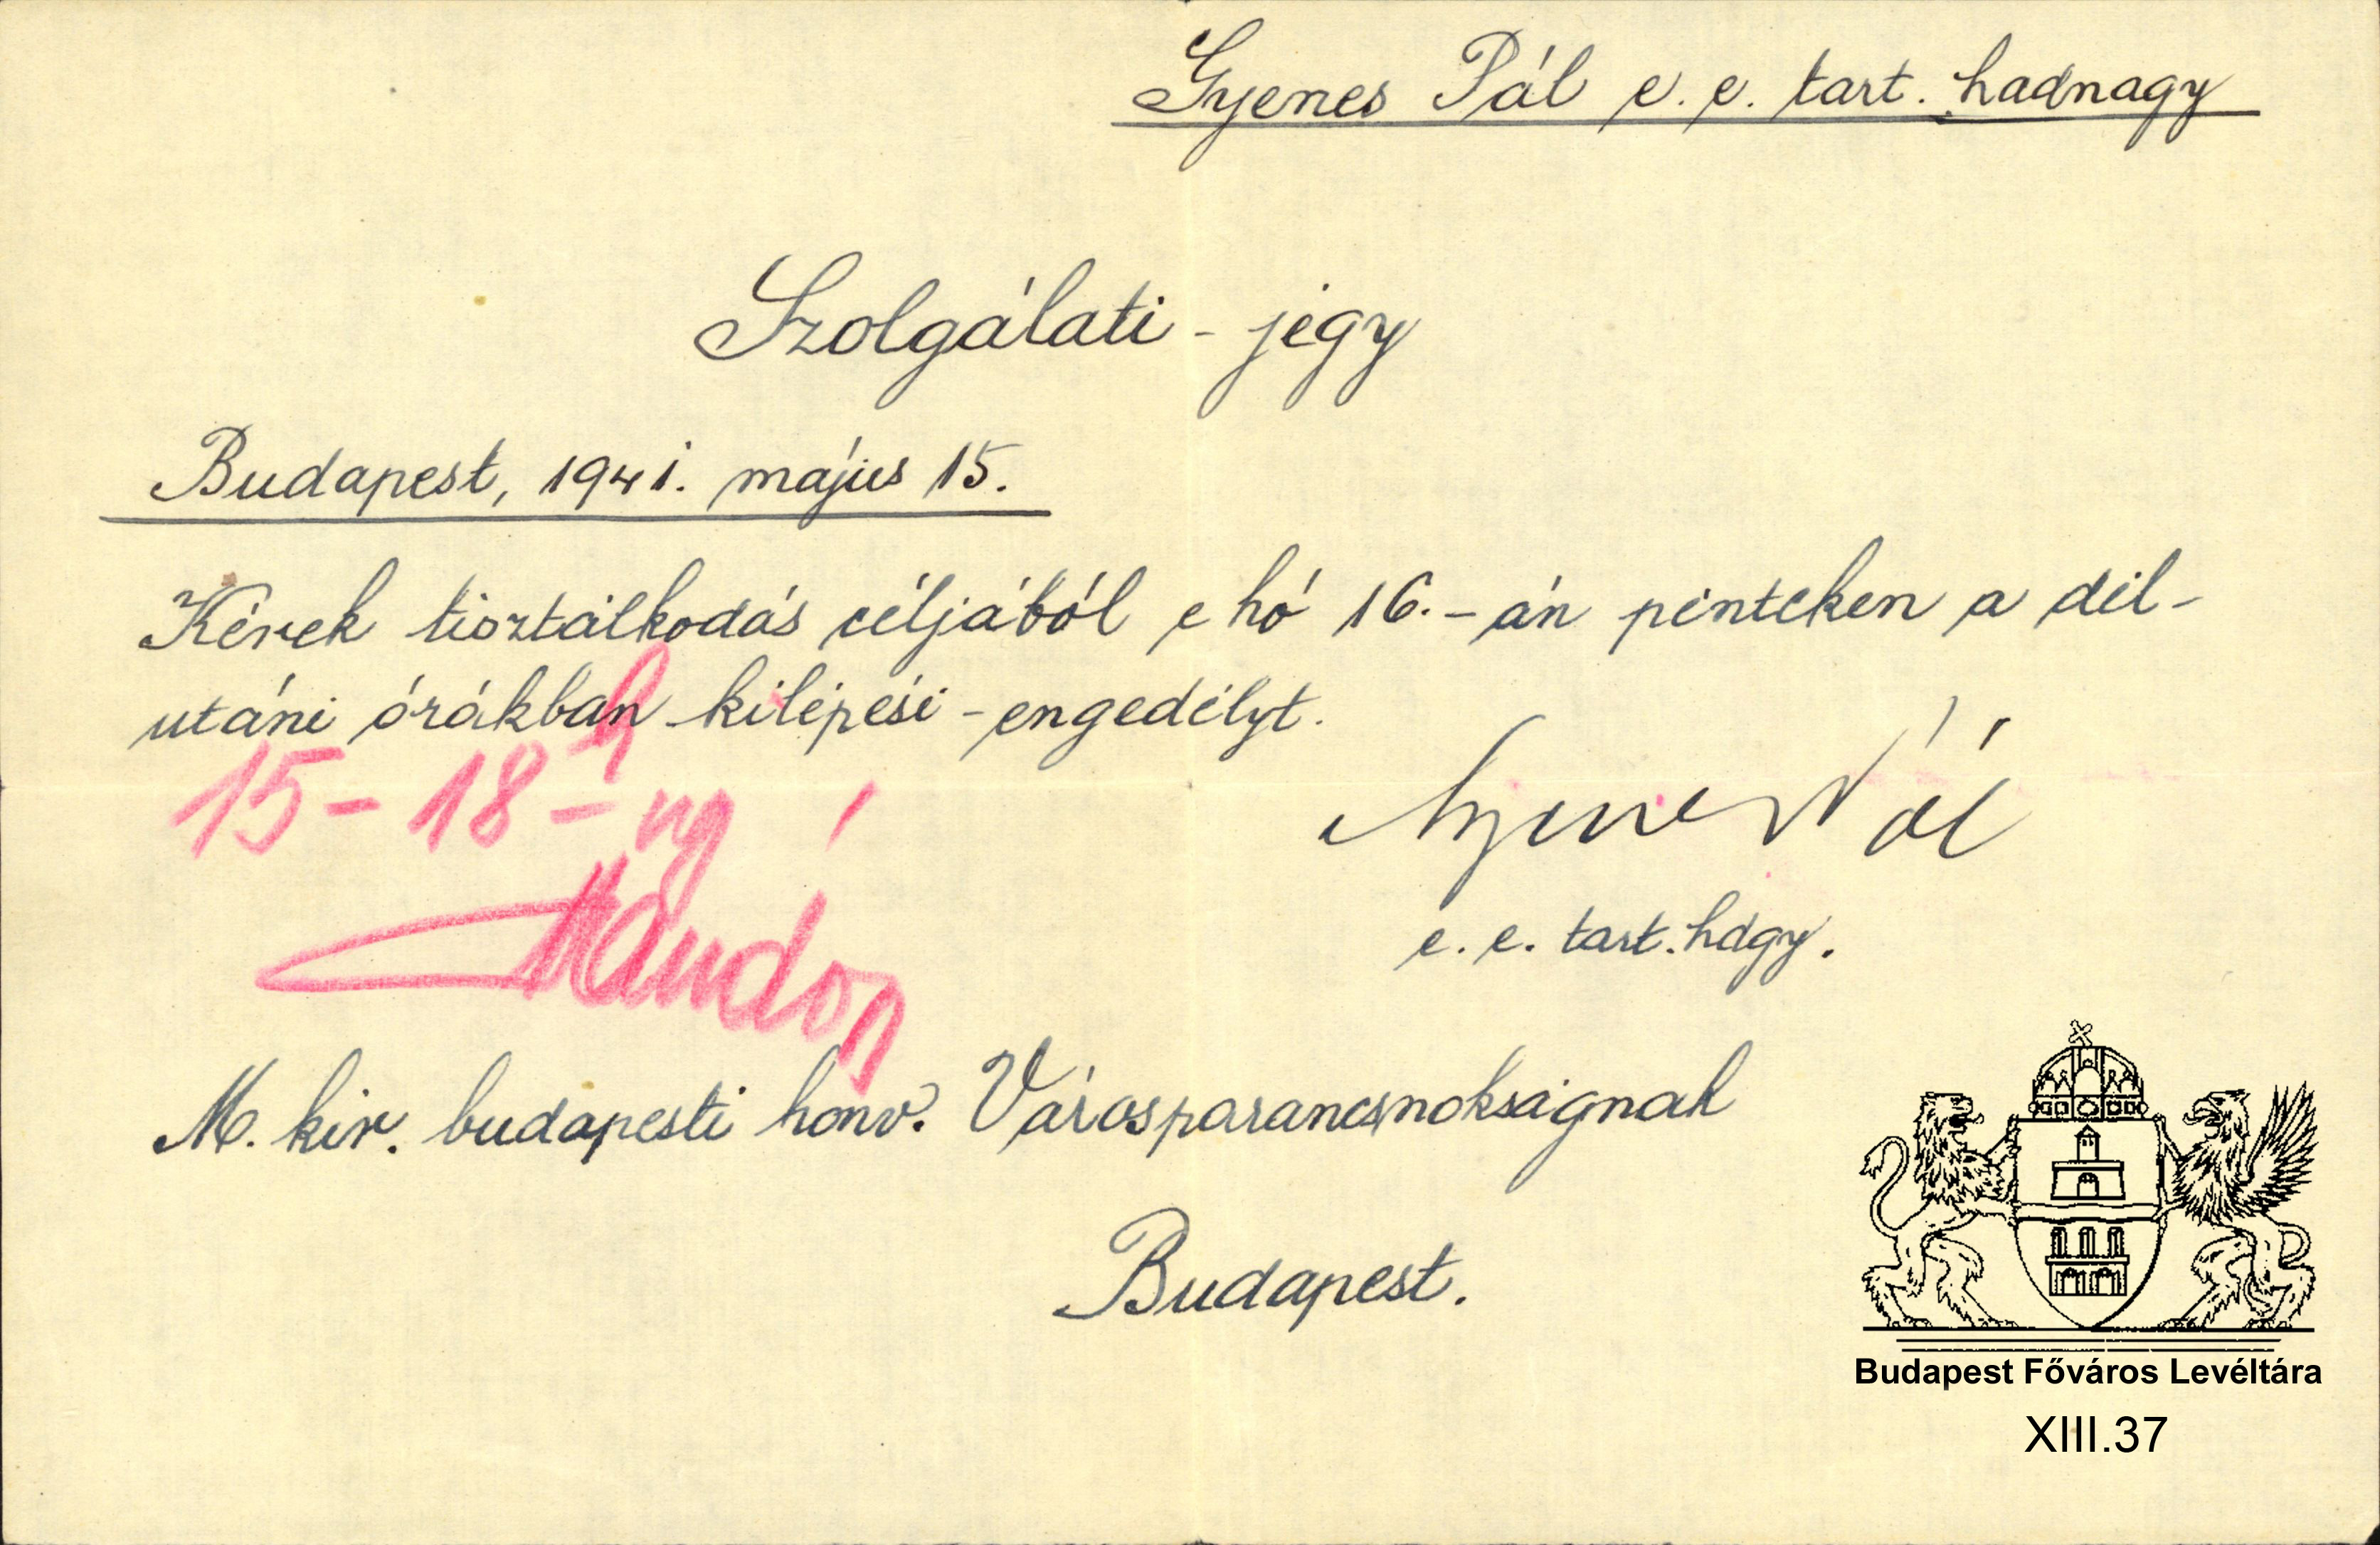 Gyenes Pál e. e. tart. hadnagy
Szolgálati - jegy
Budapest, 1941. május 15.
Kérek tisztálkodás céljából e hó 16.-án pénteken a dél-
utáni órákban kilépési-engedélyt.
15-18h-ig
Gyenes Pál
e. e. tart. hdgy.
M. kir. budapesti honv. Városparancsnokságnak
Budapest.
Budapest Főváros Levéltára
XIII.37